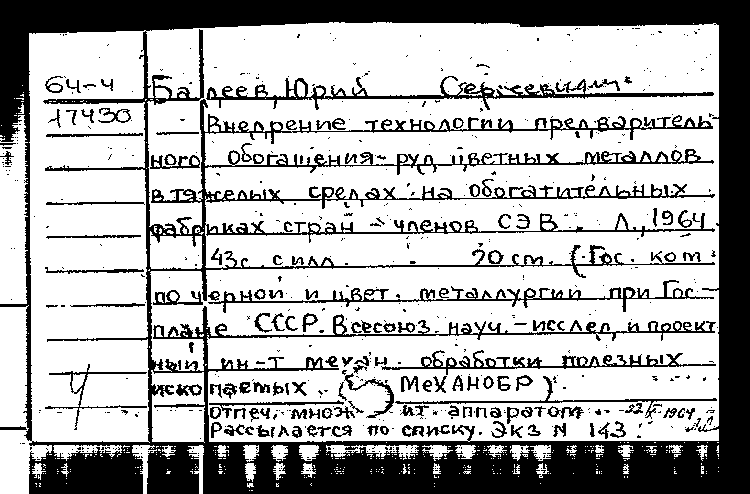 64-4 Балеев, Юрий Сергеевич.
17430 Внедрение технологии предваритель-
ного обогащения руд цветных металлов
в тяжелых средах на обогатительных
фабриках стран - членов СЭВ. Л., 1964.
43с. с илл. 20 см. (Гос. ком.
по черной и цвет. металлургии при Гос-
плане СССР. Всесоюз. науч.-исслед. и проект
ный ин-т механ. обработки полезных
ископаемых МЕХАНОБР).
Отпеч. множит. аппаратом 22/X 1964
Рассылается по списку. Экз N 143.